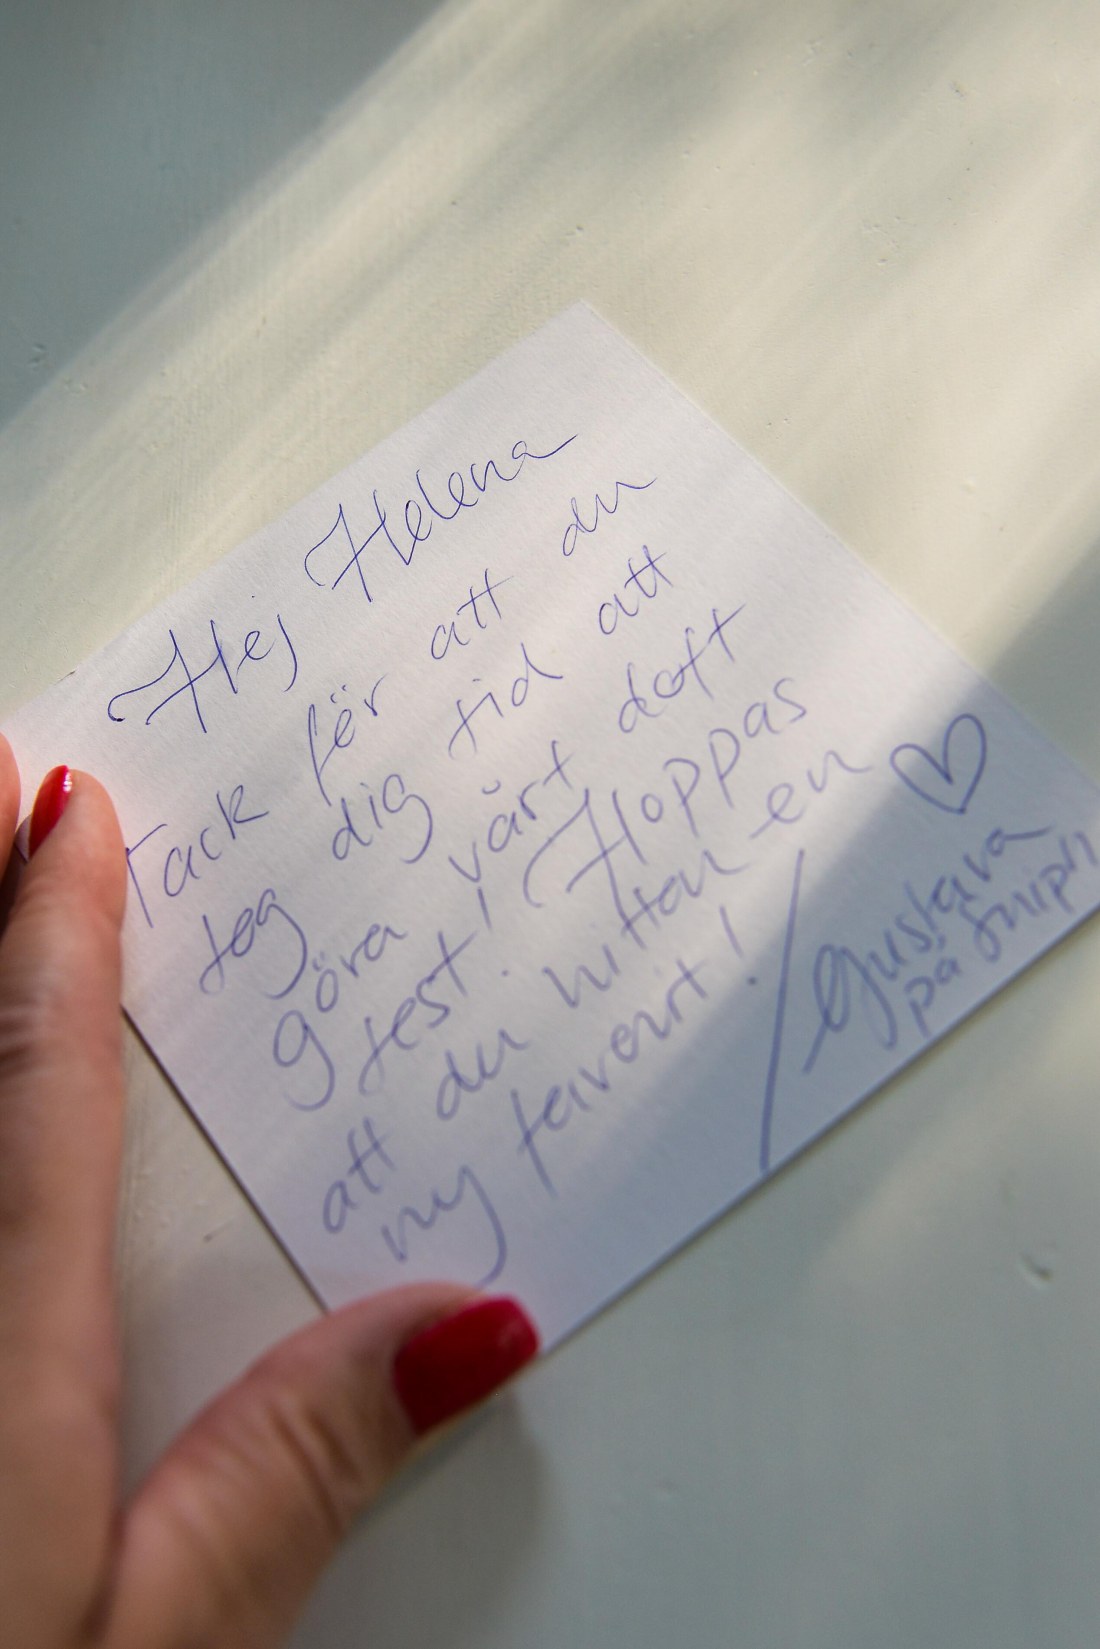 Hej Helena
Tack för att du
tog dig tid att
göra vårt doft
test! Hoppas
att du hittar en
ny favorit! ♡
/Gustava
på